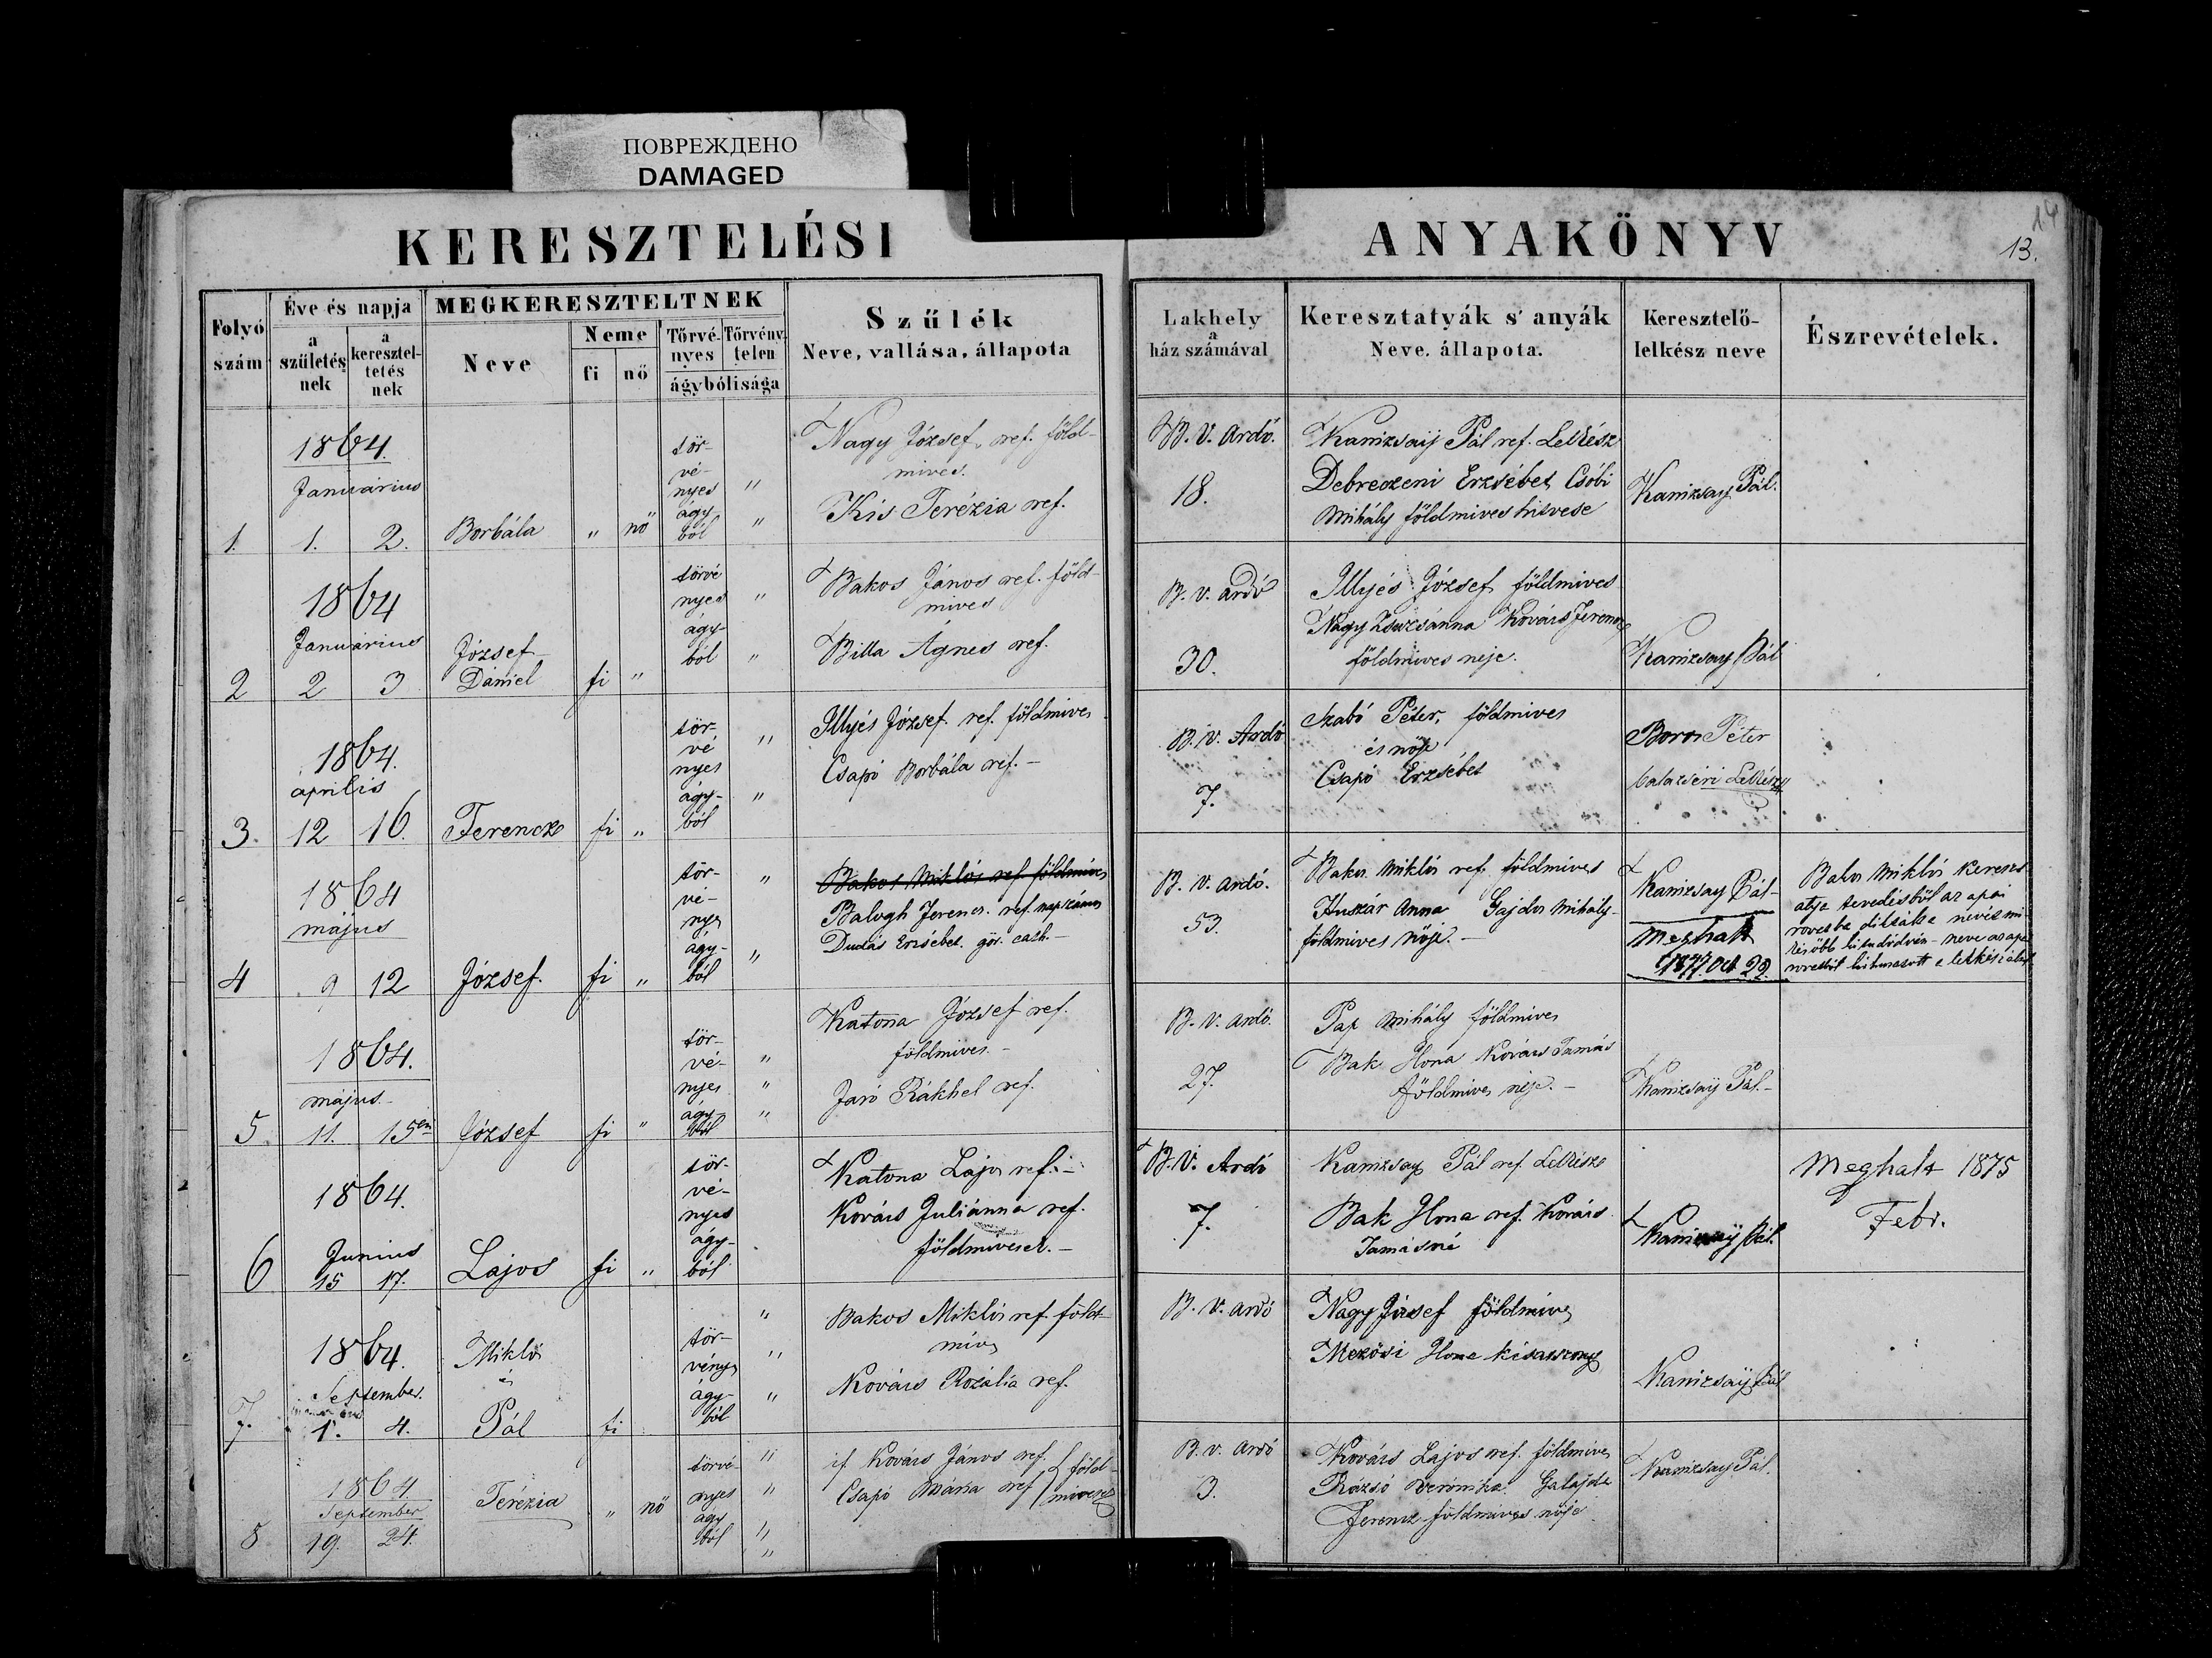 ПОВРЕЖДЕНО
DAMAGED
KERESZTELÉSI
ANYAKÖNYV
14
13.
Folyó
szám
Éve és napja
a
születés
nek
a
keresztel-
tetés
nek
MEGKERESZTELTNEK
Neve
Neme
fi
nő
Törvé-
nyes
Törvény
telen
ágybólisága
Szűlék
Neve, vallása, állapota
Lakhely
a
ház számával
Keresztatyák s' anyák
Neve, állapota.
Keresztelő-
lelkész neve
Észrevételek.
1864.
Januárius
1.
1.
2.
Borbála
"
nö
tör-
vé-
nyes
ágy
ból
"
"
Nagy József, ref. föld-
mives.
Kis Terézia ref.
B. V. Ardó.
18.
Kanizsaij Pál ref. Lelkész
Debreczeni Erzsébet Csóbi
Mihály földmives hitvese
Kanizsay Pál.
1864
Januárius
2
2
3
József
Dániel
fi
"
törvé
nyes
ágy-
ból
"
"
Bakos János ref. föld-
mives
Billa Ágnes ref.
B. v. ardó
30.
Illyés József földmives
Nagy Zsuzsánna Kovács Ferencz
földmives neje.
Kanizsay Pál
1864.
április
3.
12
16.
Ferencz
fi
"
tör-
vé
nyes
ágy-
ból
"
"
Illyés József ref. földmives
Csapó Borbála ref. -
B. v. Ardó
7.
Szabó Péter, földmives
és nöje
Csapó Erzsébet
Boros Péter
Lelkész
1864
május
4
9
12
József.
fi
"
tör-
vé-
nyes
ágy-
ból
"
"
Bakos Miklós ref. földmives
Balogh Ferencz. ref. napszámos
Dudás Erzsébet. gör. cath. -
B. v. ardó.
53.
Bakos Miklós ref. földmives
Huszár Anna Gajdos Mihály
földmives nöje. -
Kanizsay Pál -
Meghalt
1877. Oct 22.
Bakos Miklós kereszt
atya tévedésből az apai
rovatba
1864.
május. -
5
11.
15én
József
fi
"
tör-
vé-
nyes
ágy-
ból
"
"
"
Katona József ref.
földmives. -
Jaró Rákhel ref.
B. v. ardó.
27.
Pap Mihály földmives
Bak Ilona Kovács Tamás
földmives neje. -
Kanizsaij Pál. -
1864.
Junius
6
15
17.
Lajos
fi
"
tör-
vé-
nyes
ágy-
ból
Katona Lajos ref. -
Kovács Juliánna ref.
földmivesek. -
B. V. Ardó
7.
Kanizsay Pál ref. Lelkész
Bak Ilona ref. Kovács
Tamásné
Kanizsaÿ Pál.
Meghalt 1875
Febr.
1864.
September.
7.
1.
4.
Miklós
és
Pál
fi
tör-
vényes
ágy-
ból
"
"
"
Bakos Miklós ref. föld-
mives
Kovács Rozália ref.
B. v. ardó
Nagy József földmives
Mezősi Ilona kisasszony
Kanizsaÿ Pál
1864
September
8
19.
24.
Terézia
"
nö
törvé-
nyes
ágy
ból
"
"
"
"
if Kovács János ref. föld-
Csapó Mária ref mivesek
B. v. ardó
3.
Kovács Lajos ref. földmives
Rázsó Veronika Galajda
Ferencz földmives nöje
Kanizsay Pál.